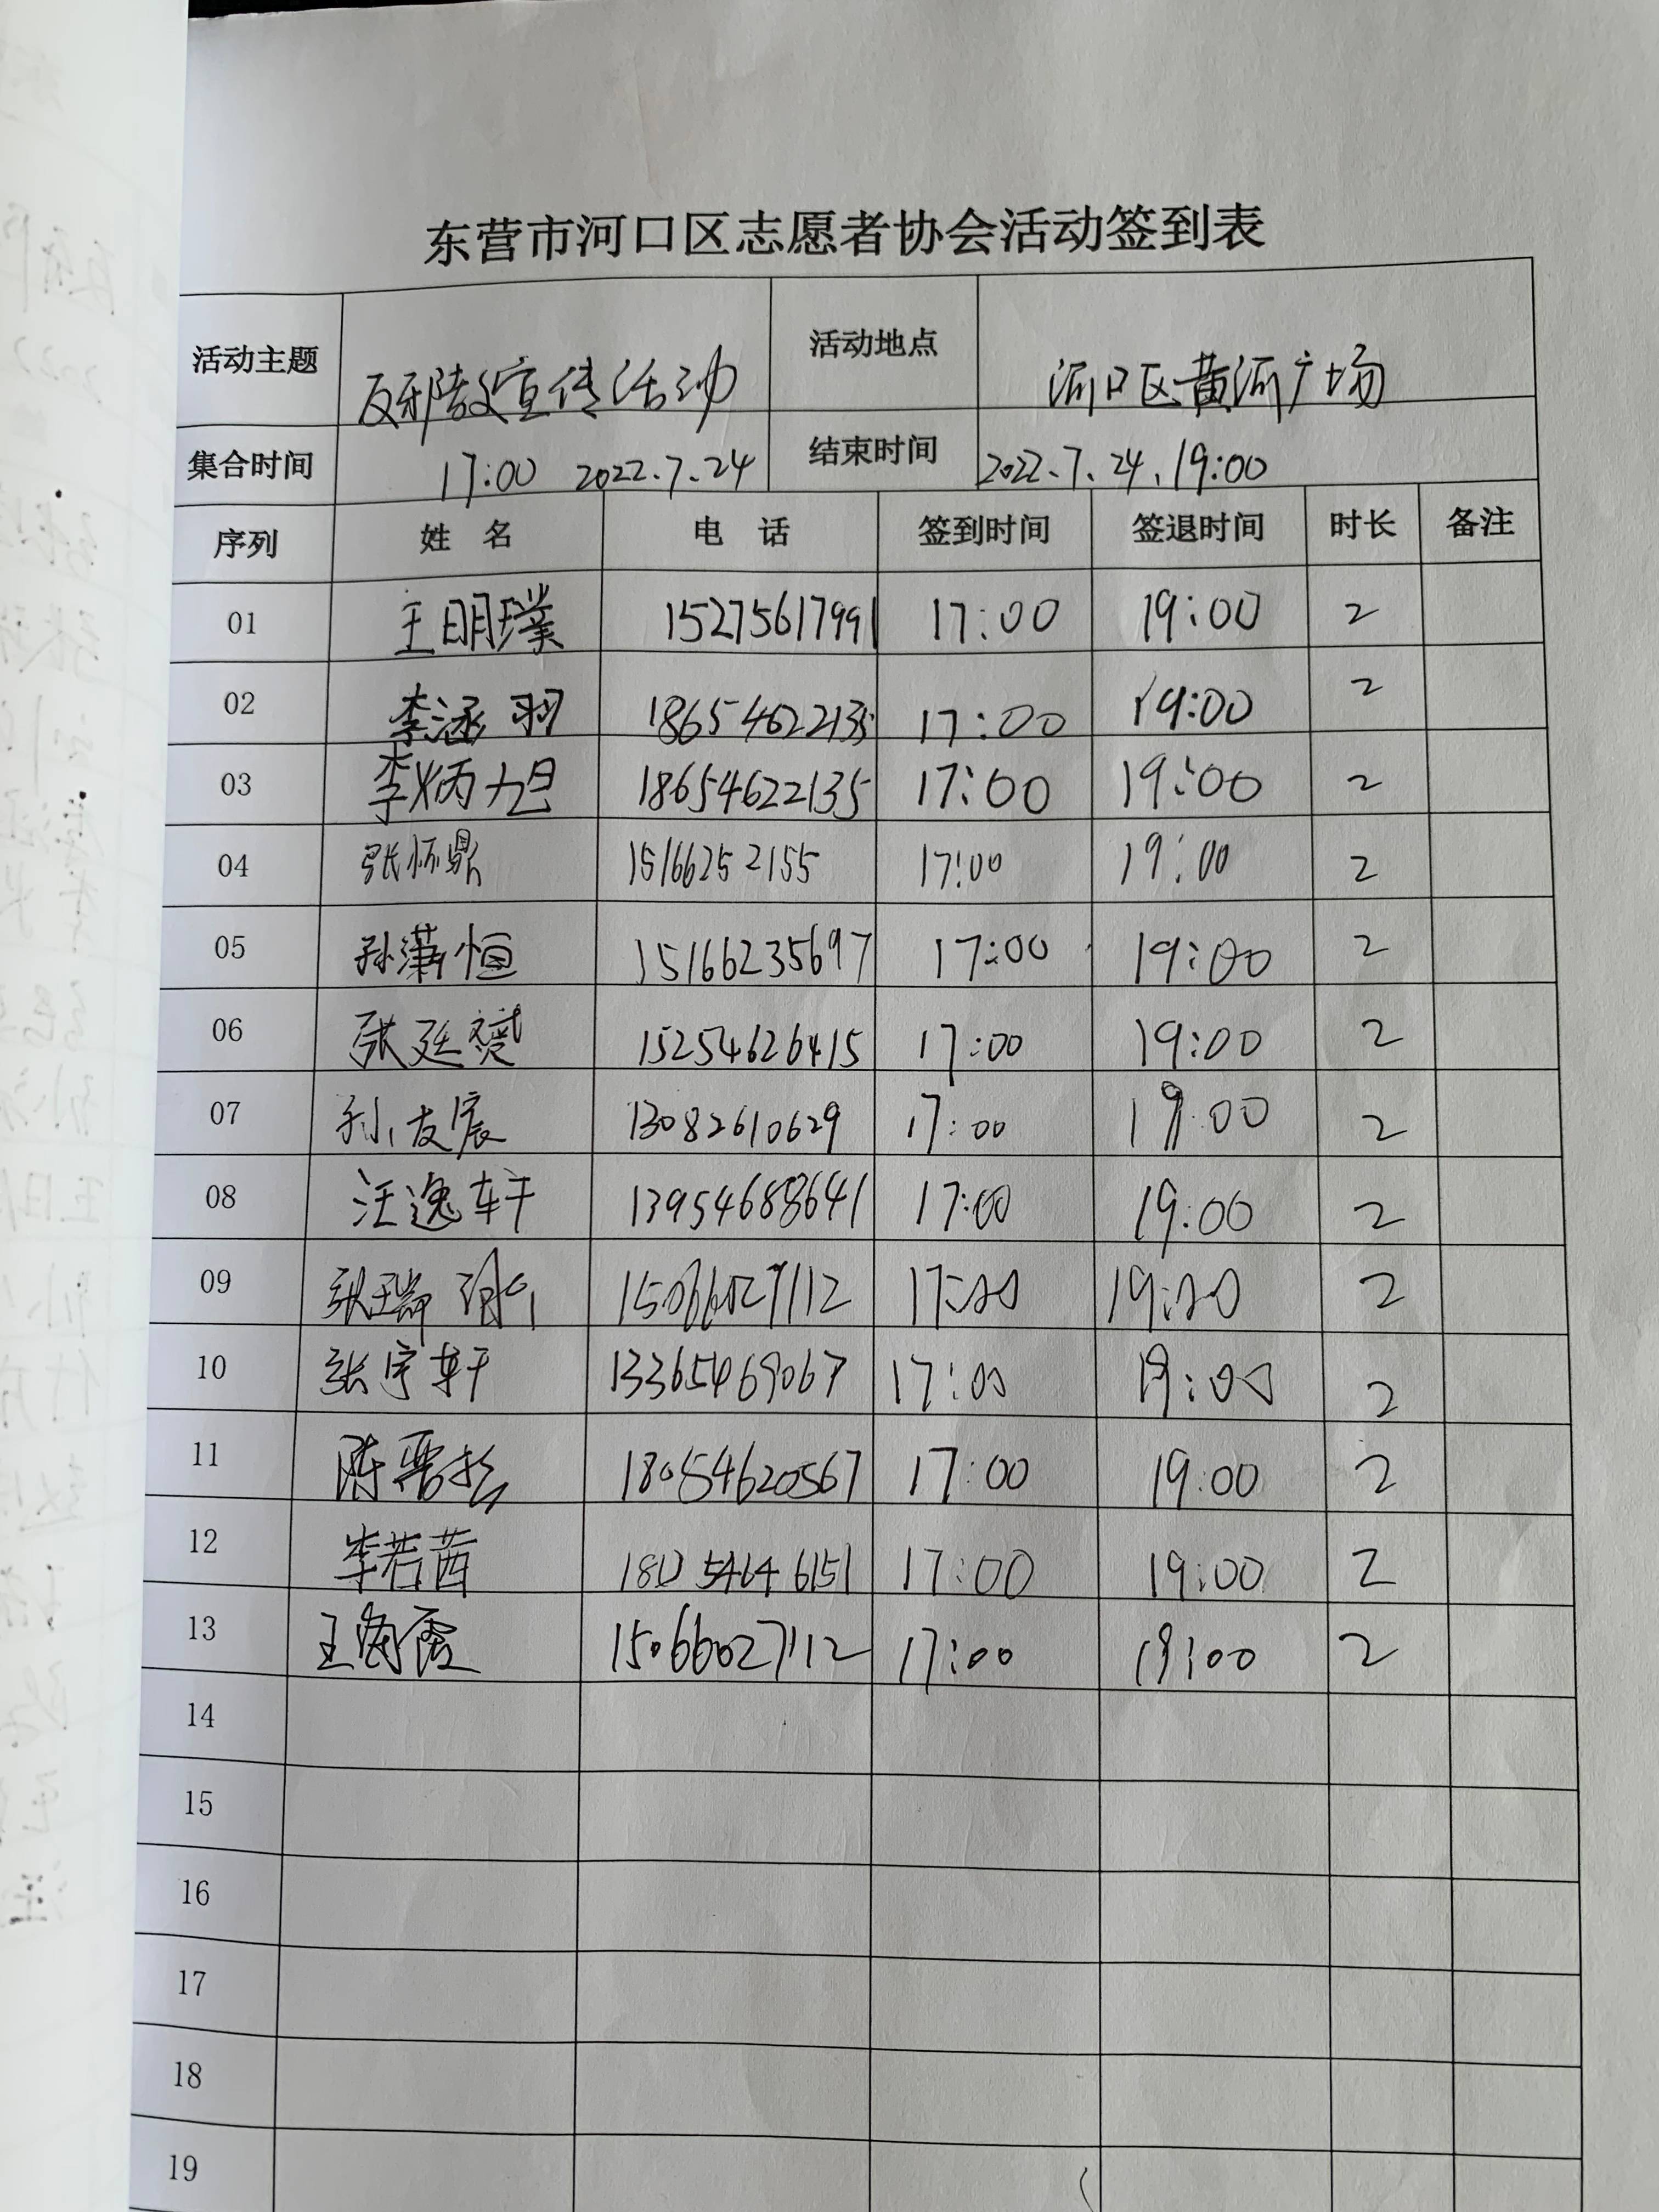 东营市河口区志愿者协会活动签到表
活动主题 反邪教宣传活动 活动地点 河口区黄河广场
集合时间 17:00 2022.7.24 结束时间 2022.7.24.19:00
序列 姓名 电话 签到时间 签退时间 时长 备注
01 王明璞 15275617991 17:00 19:00 2
02 李涵羽 18654622135 17:00 19:00 2
03 李炳旭 18654622135 17:00 19:00 2
04 张怀鼎 15166252155 17:00 19:00 2
05 孙潇恒 15166235697 17:00 19:00 2
06 张廷赟 15254626415 17:00 19:00 2
07 孙友宸 13082610629 17:00 19:00 2
08 汪逸轩 13954688641 17:00 19:00 2
09 张瑞 15066027112 17:00 19:00 2
10 张宇轩 13365469067 17:00 19:00 2
11 陈 18054620567 17:00 19:00 2
12 李若茜 17:00 19:00 2
13 王海霞 15066027112 17:00 19:00 2
14
15
16
17
18
19